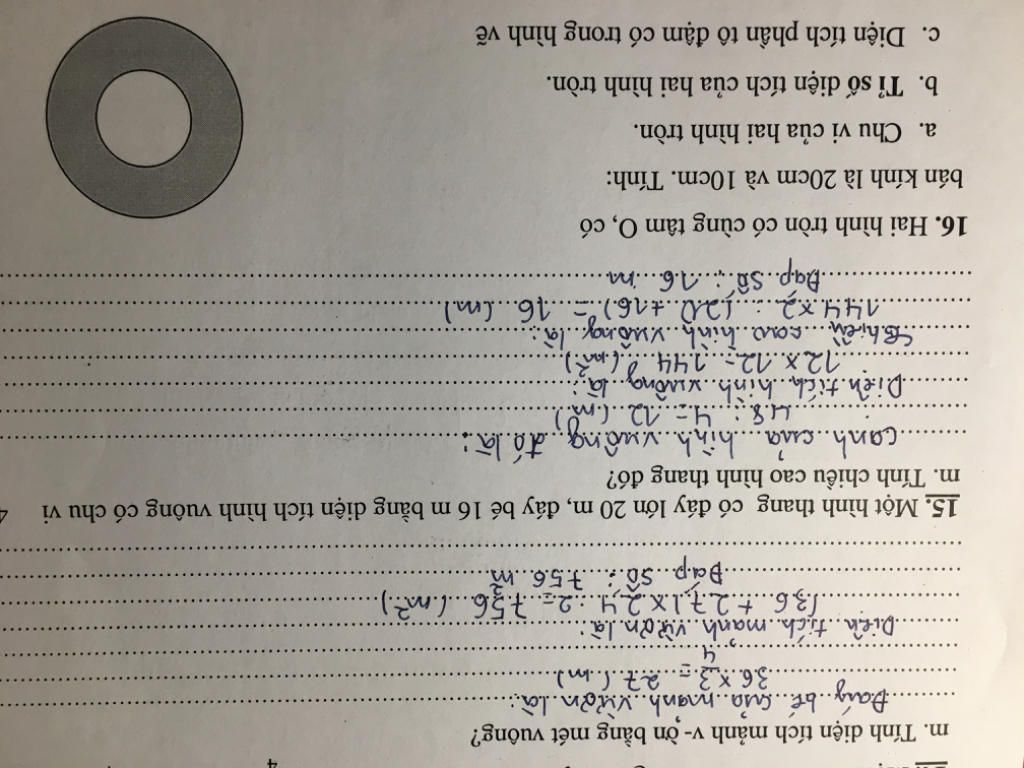 m. Tính diện tích mảnh v-ờn bằng mét vuông?
Đáy bé của manh vườn là:
36 x 3/4 = 27 (m)
Diện tích manh vườn là:
(36 + 27) x 24 : 2 = 756 (m²)
Đáp số: 756 m²
15. Một hình thang có đáy lớn 20 m, đáy bé 16 m bằng diện tích hình vuông có chu vi 4
m. Tính chiều cao hình thang đó?
canh của hình vuông đó là:
48 : 4 = 12 (m)
Diện tích hình vuông là:
12 x 12 = 144 (m²)
Chiều cao hình vuông là:
144 x 2 : (20 + 16) = 16 (m)
Đap Số: 16 m
16. Hai hình tròn có cùng tâm O, có
bán kính là 20cm và 10cm. Tính:
a. Chu vi của hai hình tròn.
b. Tỉ số diện tích của hai hình tròn.
c. Diện tích phần tô đậm có trong hình vẽ